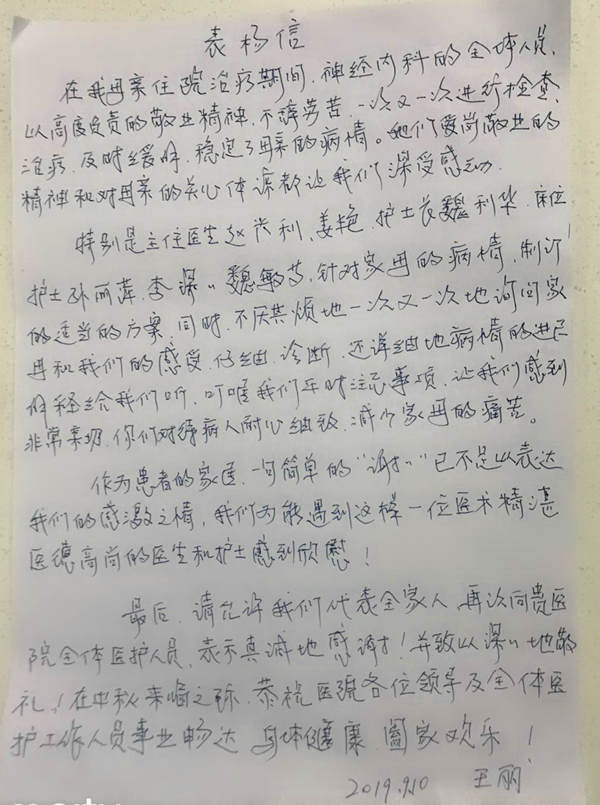 表杨信
在我母亲住院治疗期间，神经内科的全体人员，
以高度负责的敬业精神，不辞劳苦，一次又一次进行检查、
治疗，及时缓解，稳定了母亲的病情。她们爱岗敬业的
精神和对母亲的关心体谅都让我们深受感动。
特别是主任医生赵兴利、姜艳，护士长魏利华，床位
护士孙丽萍、李深〃魏敏芳，针对家母的病情，制订
的适当的方案，同时，不厌其烦地一次又一次地询问家
母和我们的感受，仔细诊断，还详细地病情的进展
解释给我们听，叮嘱我们平时注意事项，让我们感到
非常亲切，你们对待病人耐心细致，减少家母的痛苦。
作为患者的家属，一句简单的“谢谢”已不足以表达
我们的感激之情，我们为能遇到这样一位医术精湛
医德高尚的医生和护士感到欣慰！
最后，请允许我们代表全家人，再次向贵医
院全体医护人员，表示真诚地感谢！并致以深〃地敬
礼！在中秋来临之际，恭祝医院各位领导及全体医
护工作人员事业畅达 身体健康 阖家欢乐！
2019.9.10 王丽